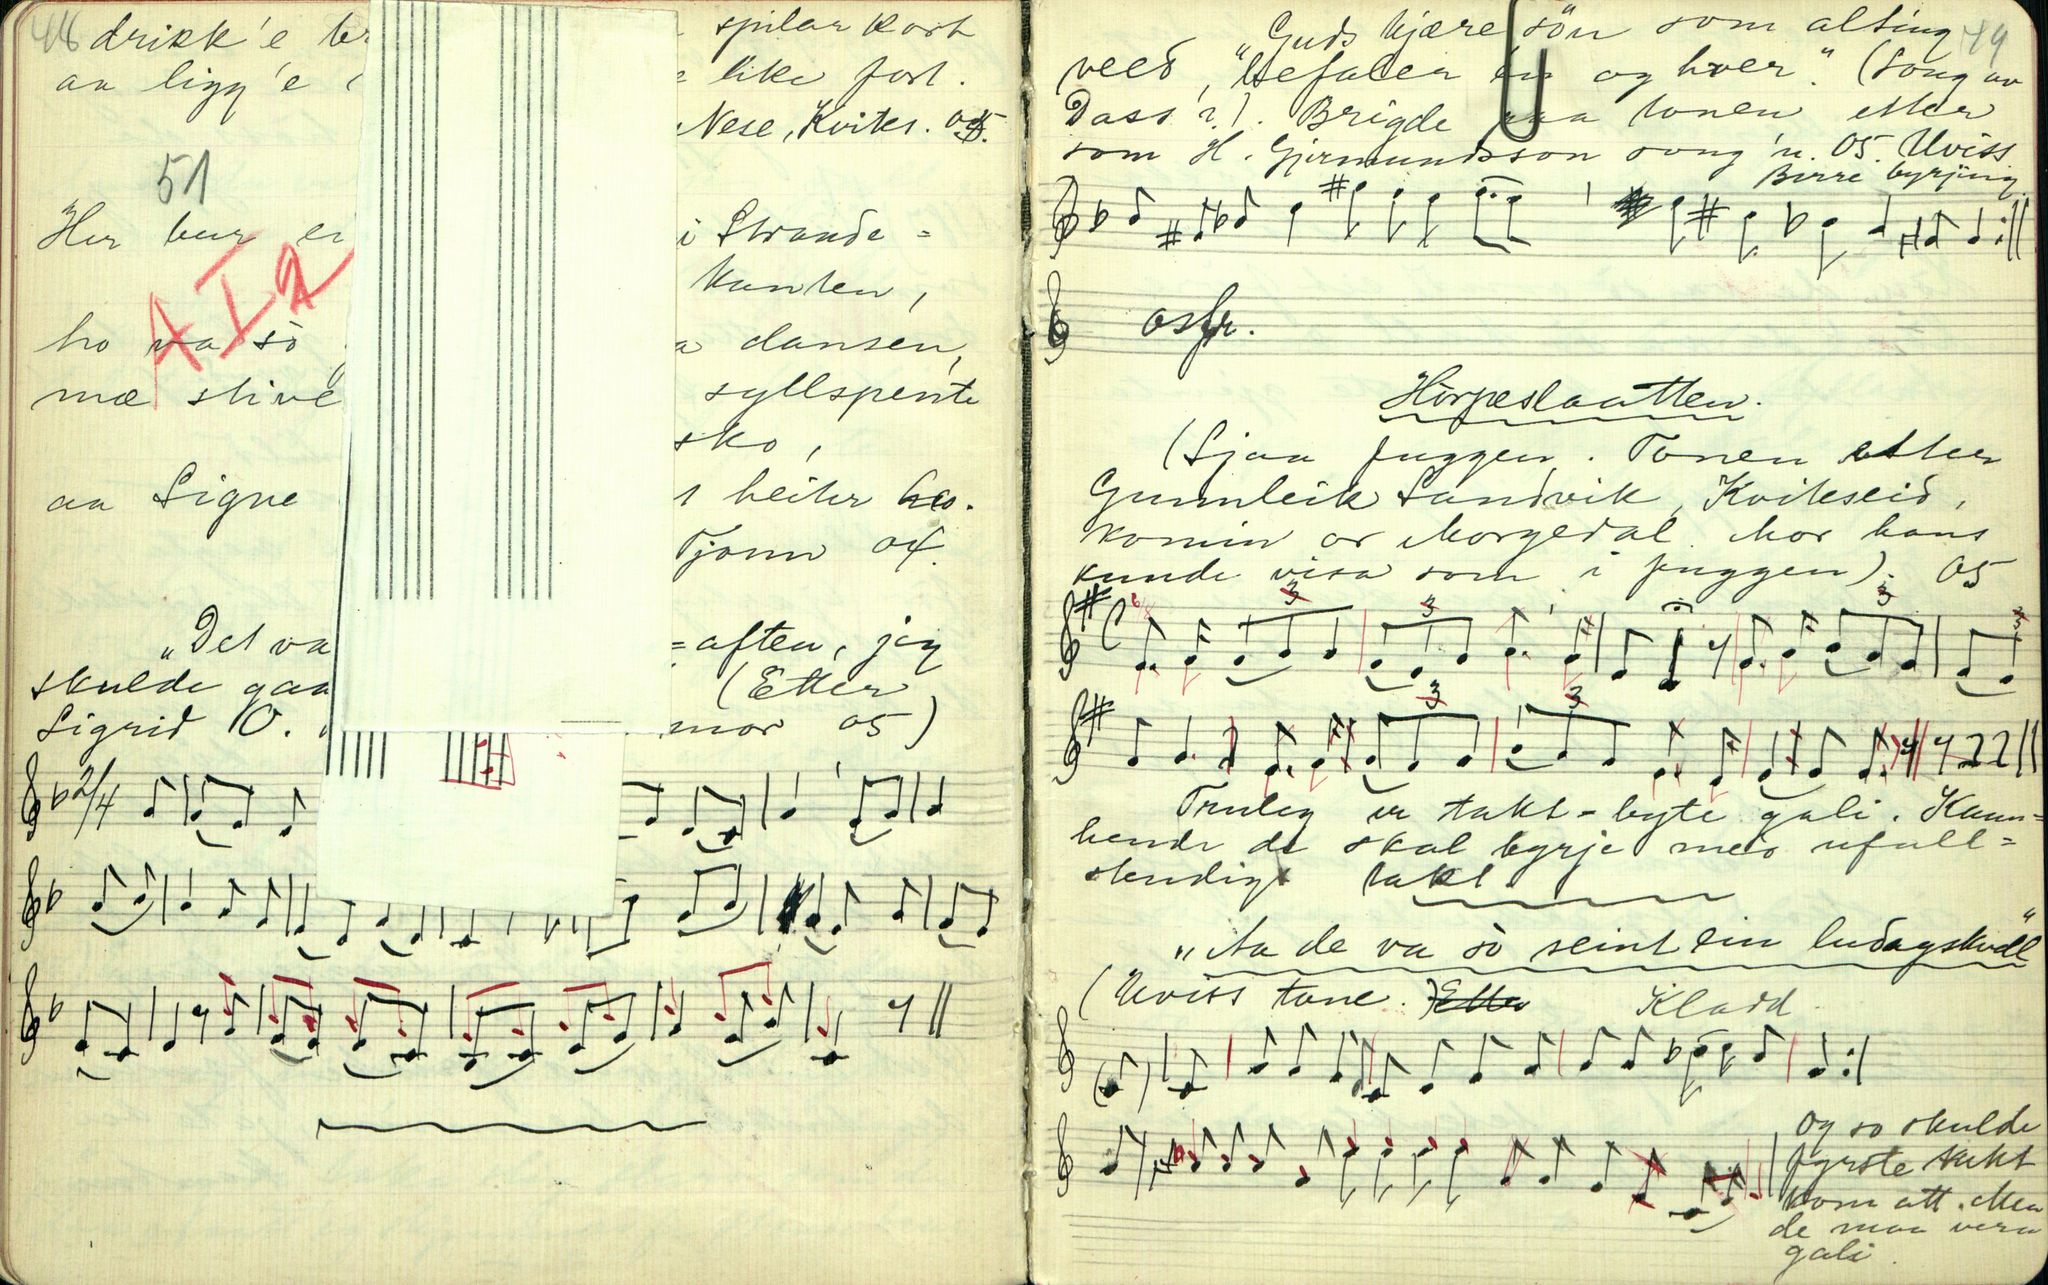 48 drikk'e br spilar kort
aa ligg'e like fort.
Nese, Kvites. 05.
51
Her bur ei i Strande=
AI2 kanten,
ho va so dansen,
mæ stive syllspente
sko,
aa Signe heiter ho.
Tjønn 04.
"Det va =aften, jeg
skulde gaa (Etter
Sigrid O. mor 05)
2/4
49
"Guds kjære søn som alting
veed, befaler én og hver." (Song av
Dass?). Brigde paa tonen etter
som H. Gjermundsson song 'n. 05. Uviss
Berre byrjing
Hørpeslaatten.
(Sjaa puggen. Tonen etter
Gunnleik Sandvik, Kvitseid,
komin or Morgedal. Mor hans
kunde visa som i puggen). 05
C 3 3 3 3
3 3
Truleg er takt=byte gali. Kann=
hende de skal byrje med ufull=
stendig takt
"Aa de va so seint ein ludagskvell"
(Uviss tone.) Etter Kladd
Og so skulde
fyrste takt
kom att. Men
de maa vera
gali.